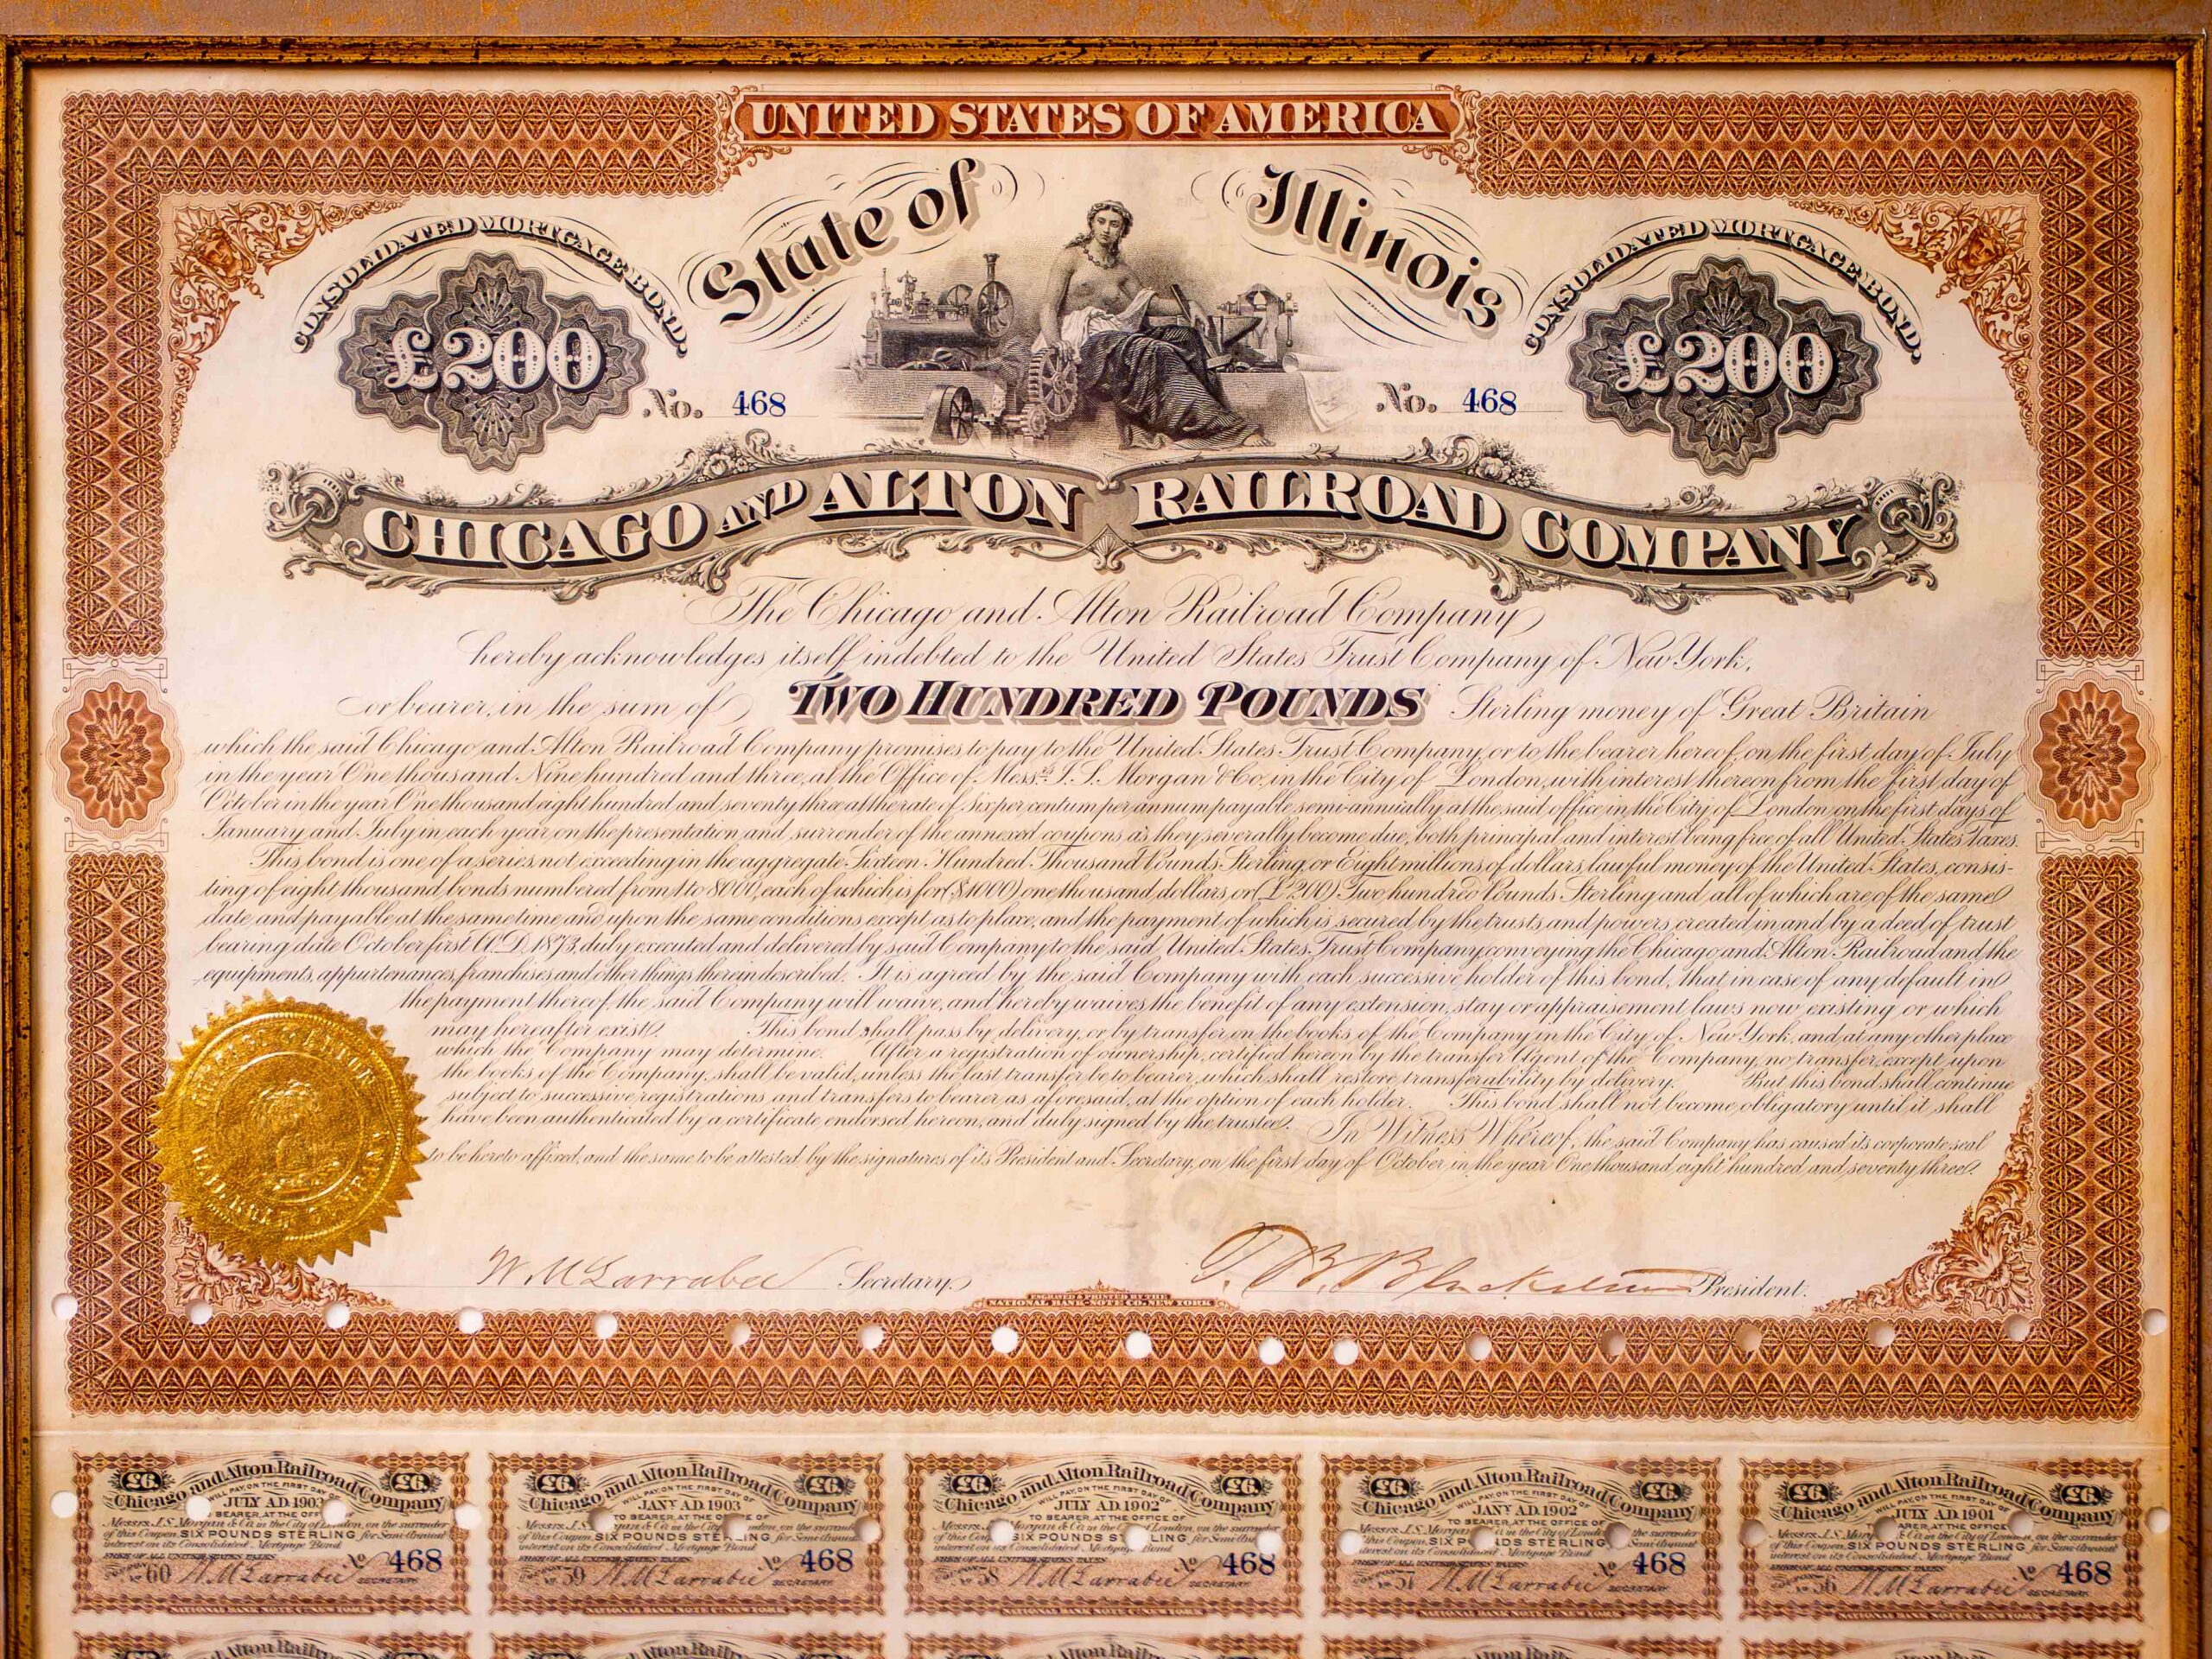 UNITED STATES OF AMERICA
State of Illinois
CONSOLIDATED MORTGAGE BOND.
CONSOLIDATED MORTGAGE BOND.
£200
£200
No. 468
No. 468
CHICAGO AND ALTON RAILROAD COMPANY
The Chicago and Alton Railroad Company
hereby acknowledges itself indebted to the United States Trust Company of New York,
or bearer, in the sum of TWO HUNDRED POUNDS Sterling money of Great Britain
which the said Chicago and Alton Railroad Company promises to pay to the United States Trust Company, or to the bearer hereof, on the first day of July
in the year One thousand Nine hundred and three, at the Office of Messrs J. S. Morgan & Co, in the City of London, with interest thereon from the first day of
October in the year One thousand eight hundred and seventy three at the rate of six per centum per annum payable semi-annually at the said office in the City of London on the first days of
January and July in each year on the presentation and surrender of the annexed coupons as they severally become due, both principal and interest being free of all United States Taxes.
This bond is one of a series not exceeding in the aggregate Sixteen Hundred Thousand Pounds Sterling, or Eight millions of dollars, lawful money of the United States, consis-
ting of eight thousand bonds numbered from 1 to 8000, each of which is for ($1000) one thousand dollars or (£200) Two hundred Pounds Sterling and all of which are of the same
date and payable at the same time and upon the same conditions except as to place, and the payment of which is secured by the trusts and powers created in and by a deed of trust
bearing date October first A.D. 1873, duly executed and delivered by said Company to the said United States Trust Company conveying the Chicago and Alton Railroad and the
equipments, appurtenances, franchises and other things therein described. It is agreed by the said Company with each successive holder of this bond, that in case of any default in
the payment thereof, the said Company will waive, and hereby waives the benefit of any extension, stay or appraisement laws now existing or which
may hereafter exist. This bond shall pass by delivery, or by transfer on the books of the Company in the City of New York, and at any other place
which the Company may determine. After a registration of ownership, certified hereon by the transfer Agent of the Company, no transfer, except upon
the books of the Company, shall be valid, unless the last transfer be to bearer, which shall restore transferability by delivery. But this bond shall continue
subject to successive registrations and transfers to bearer as aforesaid, at the option of each holder. This bond shall not become obligatory until it shall
have been authenticated by a certificate endorsed hereon, and duly signed by the trustee. In Witness Whereof, the said Company has caused its corporate seal
to be hereto affixed, and the same to be attested by the signatures of its President and Secretary, on the first day of October in the year One thousand eight hundred and seventy three.
W. M. Larrabee Secretary.
T. B. Blackstone President.
ENGRAVED & PRINTED BY THE
NATIONAL BANK-NOTE CO. NEW YORK
£6. Chicago and Alton Railroad Company £6.
WILL PAY, ON THE FIRST DAY OF
JULY A.D. 1903
BEARER, AT THE OFF
Messrs. J. S. Morgan & Co. in the City of London, on the surrender
of this Coupon, SIX POUNDS STERLING for Semi-Annual
interest on its Consolidated Mortgage Bond
FREE OF ALL UNITED STATES TAXES
No 468
60 W. M. Larrabee SECRETARY
NATIONAL BANK NOTE CO. NEW YORK
£6. Chicago and Alton Railroad Company £6.
WILL PAY, ON THE FIRST DAY OF
JANY A.D. 1903
TO BEARER, AT THE OFFICE OF
Messrs. J. S. & Co. in the City on the surrender
of this Coupon SIX POUNDS STERLING for Semi-Annual
interest on its Consolidated Mortgage Bond
FREE OF ALL UNITED STATES TAXES
No 468
59 W. M. Larrabee SECRETARY
NATIONAL BANK NOTE CO. NEW YORK
£6. Chicago and Alton Railroad Company £6.
WILL PAY, ON THE FIRST DAY OF
JULY A.D. 1902
TO BEARER, AT THE OFFICE OF
Messrs. Morgan & Co. in the City of London, on the surrender
of this SIX POUNDS LING for Semi-Annual
interest on its Consolidated Mortgage Bond
FREE OF ALL UNITED STATES TAXES
No 468
58 W. M. Larrabee SECRETARY
NATIONAL BANK NOTE CO. NEW YORK
£6. Chicago and Alton Railroad Company £6.
WILL PAY, ON THE FIRST DAY OF
JANY A.D. 1902
TO BEARER, AT THE OFFICE OF
Messrs. J. S. Morgan in the City of London the surrender
of this Coupon, SIX STERLING Semi-Annual
interest on its Consolidated Mortgage Bond
FREE OF ALL UNITED STATES TAXES
No 468
57 W. M. Larrabee SECRETARY
NATIONAL BANK NOTE CO. NEW YORK
£6. Chicago and Alton Railroad Company £6.
WILL PAY, ON THE FIRST DAY OF
JULY A.D. 1901
AT THE OFFICE
Messrs. J. S. & Co. in the City of London, on the surrender
of this Coupon, SIX POUNDS STERLING for Semi-Annual
interest on its Consolidated Mortgage Bond
FREE OF ALL UNITED STATES TAXES
No 468
56 W. M. Larrabee SECRETARY
NATIONAL BANK NOTE CO. NEW YORK